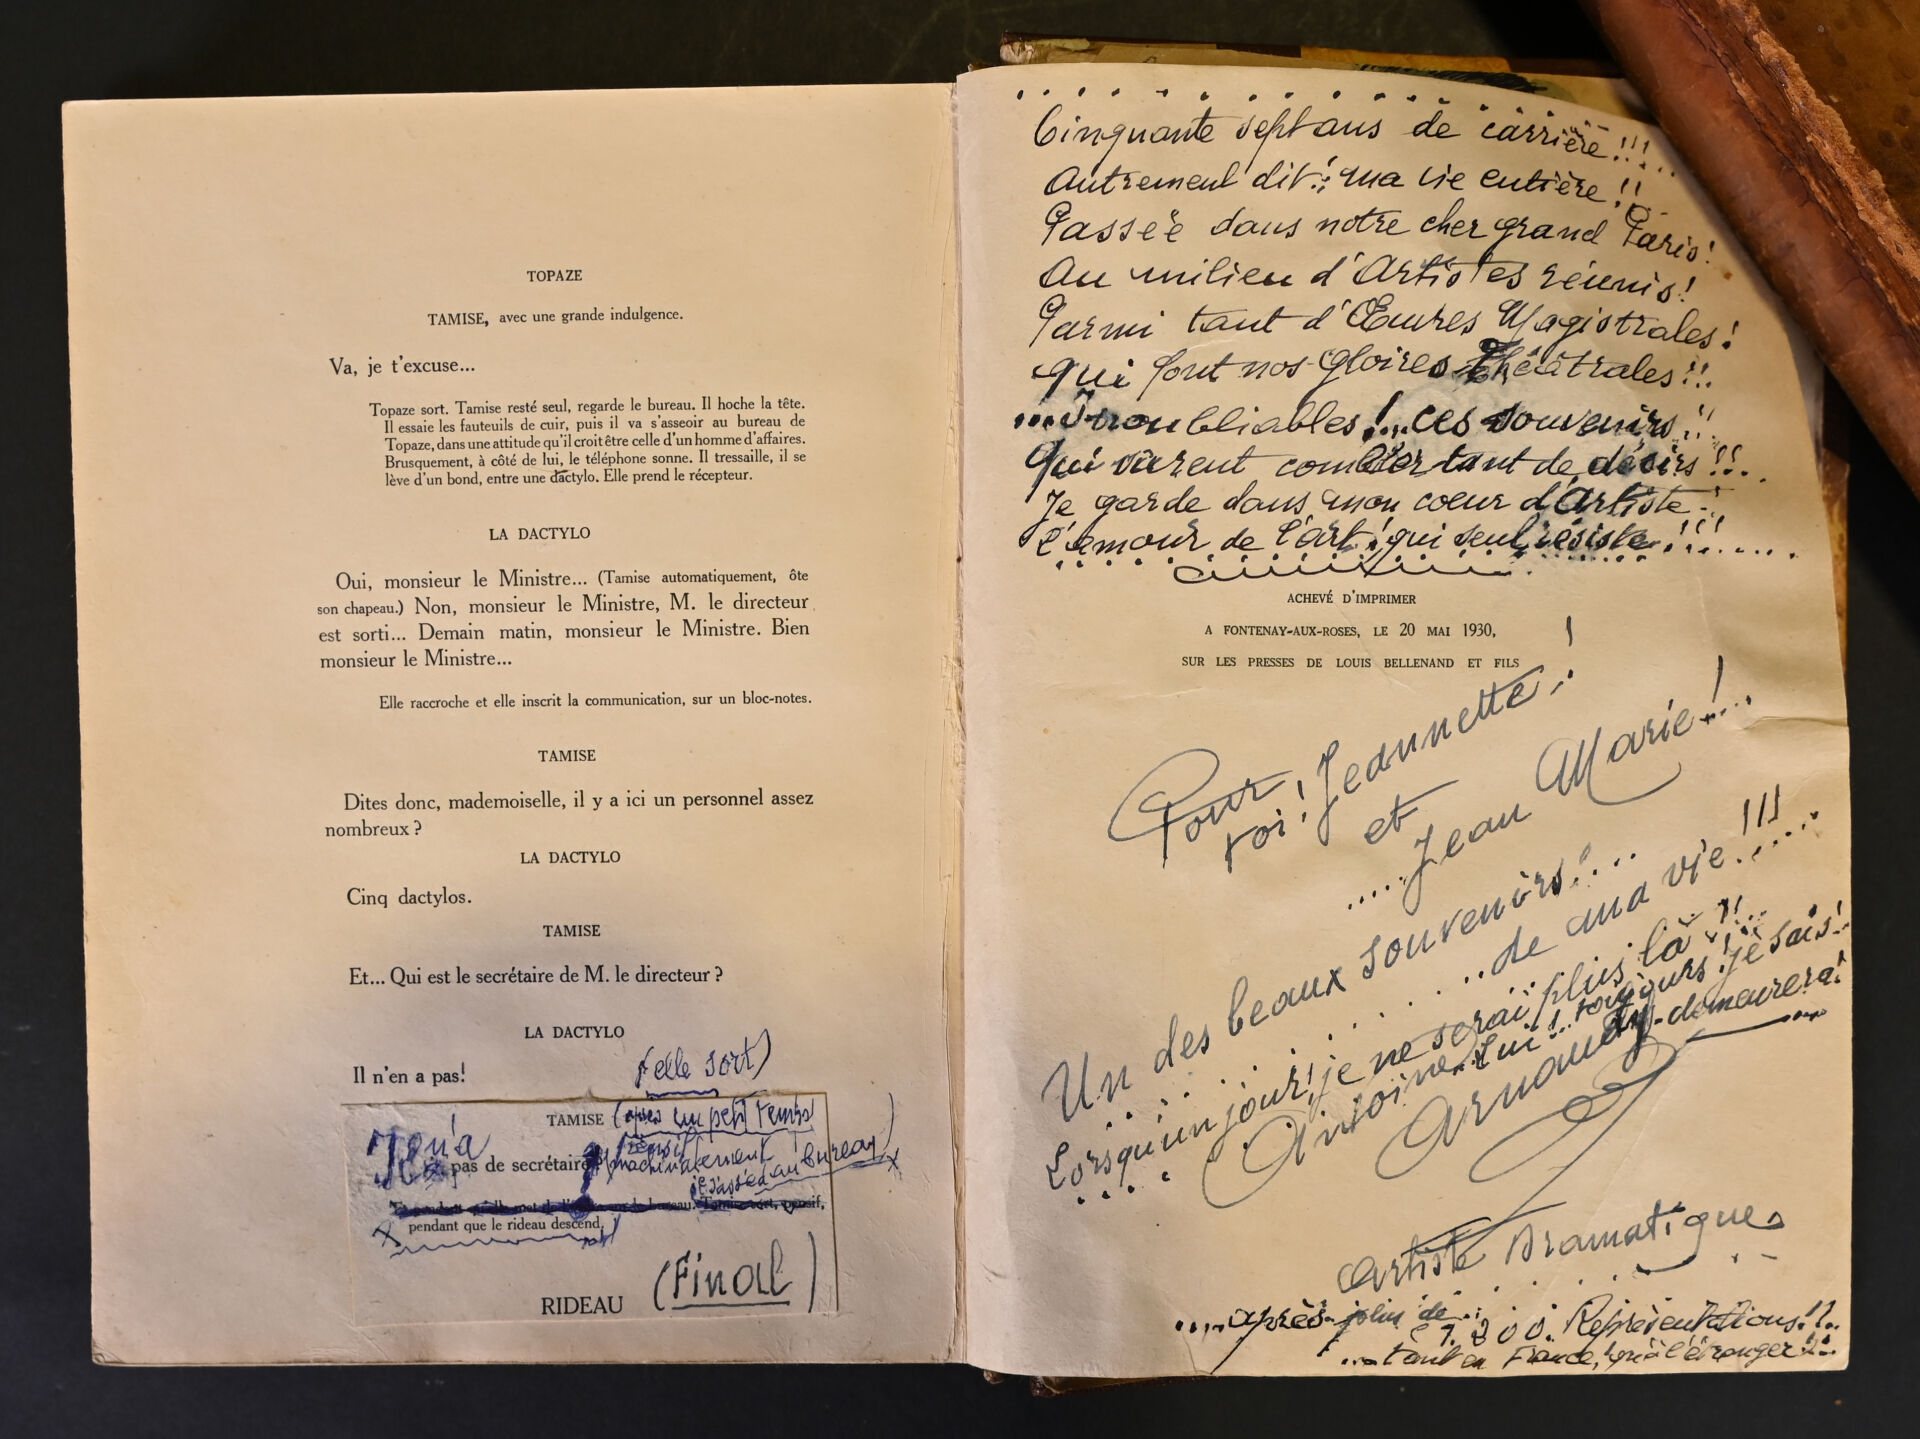 TOPAZE
TAMISE, avec une grande indulgence.
Va, je t'excuse...
Topaze sort. Tamise resté seul, regarde le bureau. Il hoche la tête.
Il essaie les fauteuils de cuir, puis il va s'asseoir au bureau de
Topaze, dans une attitude qu'il croit être celle d'un homme d'affaires.
Brusquement, à côté de lui, le téléphone sonne. Il tressaille, il se
lève d'un bond, entre une dactylo. Elle prend le récepteur.
LA DACTYLO
Oui, monsieur le Ministre... (Tamise automatiquement, ôte
son chapeau.) Non, monsieur le Ministre, M. le directeur
est sorti... Demain matin, monsieur le Ministre. Bien
monsieur le Ministre...
Elle raccroche et elle inscrit la communication, sur un bloc-notes.
TAMISE
Dites donc, mademoiselle, il y a ici un personnel assez
nombreux ?
LA DACTYLO
Cinq dactylos.
TAMISE
Et... Qui est le secrétaire de M. le directeur ?
LA DACTYLO
(elle sort)
Il n'en a pas!
TAMISE (après un petit temps
Il n'a pensif
pas de secrétaire machinalement
il s'assied au bureau)
Tamise sort, pensif,
pendant que le rideau descend.
RIDEAU (Final)
Cinquante sept ans de carrière!!!...
Autrement dit!: ma vie entière!!
Passée dans notre cher grand Paris!
Au milieu d'Artistes réunis!
Parmi tant d'Œuvres Magistrales!
Qui font nos gloires Théâtrales!!!
...Inoubliables!...ces souvenirs!!
Qui surent combler tant de désirs!!...
Je garde dans mon coeur d'Artiste-!
L'amour de l'art! qui seul résiste!!!.......
ACHEVÉ D'IMPRIMER
A FONTENAY-AUX-ROSES, LE 20 MAI 1930,
SUR LES PRESSES DE LOUIS BELLENAND ET FILS
Pour
toi! Jeannette!
et
.....Jean Marie!...
Un des beaux souvenirs!...
...de ma vie!!!.....
Lorsqu'un jour! je ne serai plus là!!...
Lui!..toujours! je sais!
y-demeurera!
Antoine Arnaudy
Artiste Dramatique
....après plus de
1.200. Représentations!!..
...tant en France, qu'à l'étranger!!..